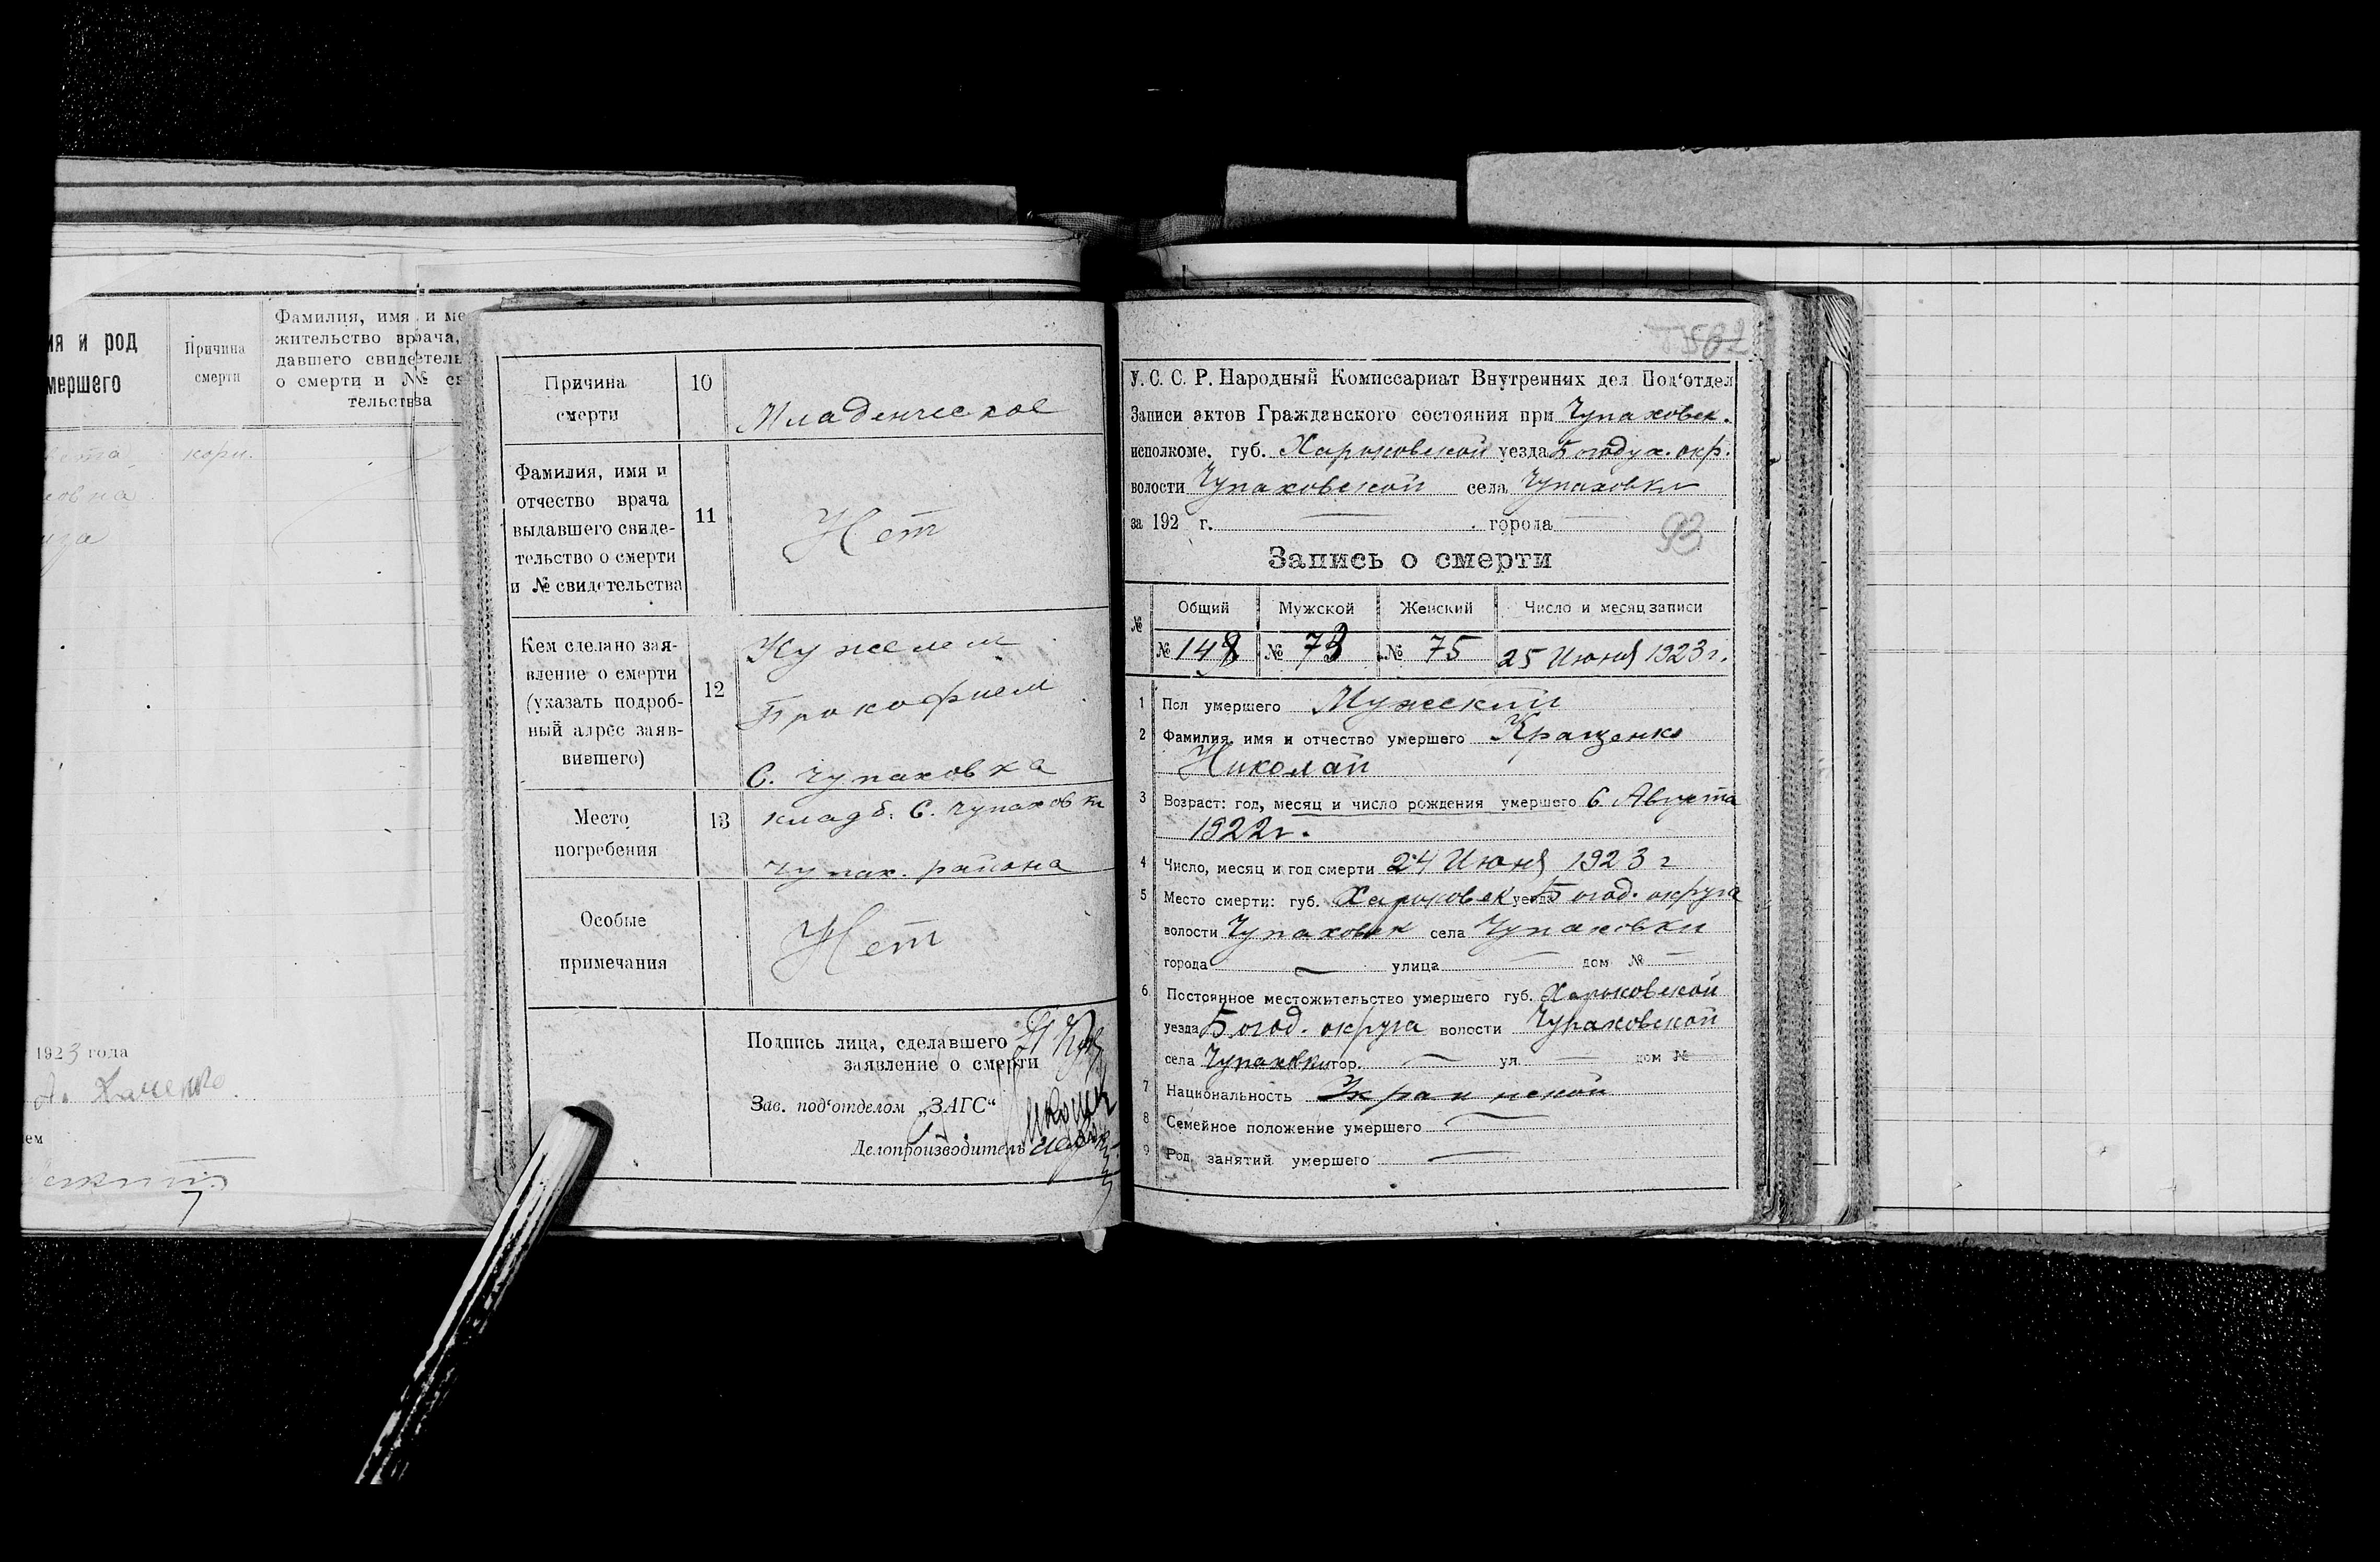 ия и род
мершего
Причина
смерти
Фамилия, имя и ме
жительство врача,
давшего свидетель
о смерти и №№ св
тельства
кори.
1923 года
ем
Причина
смерти
10
Младенческое
Фамилия, имя и
отчество врача
выдавшего свиде-
тельство о смерти
и № свидетельства
11
Нет
Кем сделано зая-
вление о смерти
(указать подроб-
ный адрес заяв-
вившего)
12
Кужелем
Прокофием
С. Чупаховка
Место
погребения
13
кладб. С. Чупаховки
Чупах. района
Особые
примечания
Нет
Подпись лица, сделавшего
заявление о смерти
Зав. под'отделом „ЗАГС"
Делопроизводитель
У. С. С. Р. Народный Комиссариат Внутренних дел Под'отдел
Записи актов Гражданского состояния при Чупаховск.
исполкоме. губ. Харьковской уезда Богодух. окр.
волости Чупаховской села Чупаховки
за 192 г. города
93
Запись о смерти
№ Общий Мужской Женский Число и месяц записи
№ 148 № 73 № 75 25 Июня 1923 г.
1 Пол умершего Мужской
2 Фамилия, имя и отчество умершего Кращенко
Николай
3 Возраст: год, месяц и число рождения умершего 6 Августа
1922 г.
4 Число, месяц и год смерти 24 Июня 1923 г
5 Место смерти: губ. Харьковск уезда Богод. округа
волости Чупаховск села Чупаховки
города улица дом №
6 Постоянное местожительство умершего губ. Харьковской
уезда Богод. округа волости Чупаховской
села Чупаховки гор. ул. дом №
7 Национальность
8 Семейное положение умершего
9 Род занятий умершего